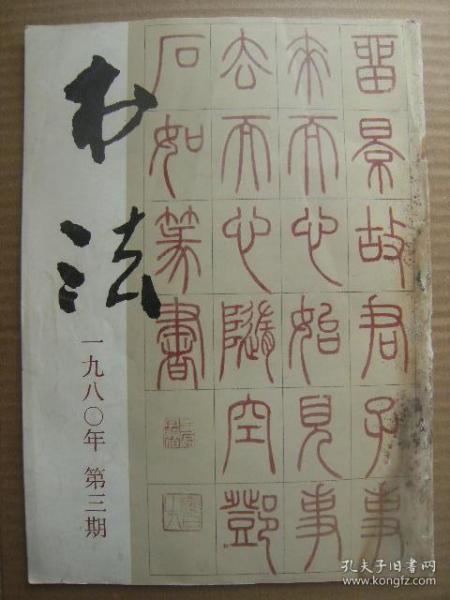 书法
一九八〇年 第三期
留景故君子事
来而心始见事
去而心随空邓
石如篆书
孔夫子旧书网
www.kongfz.com